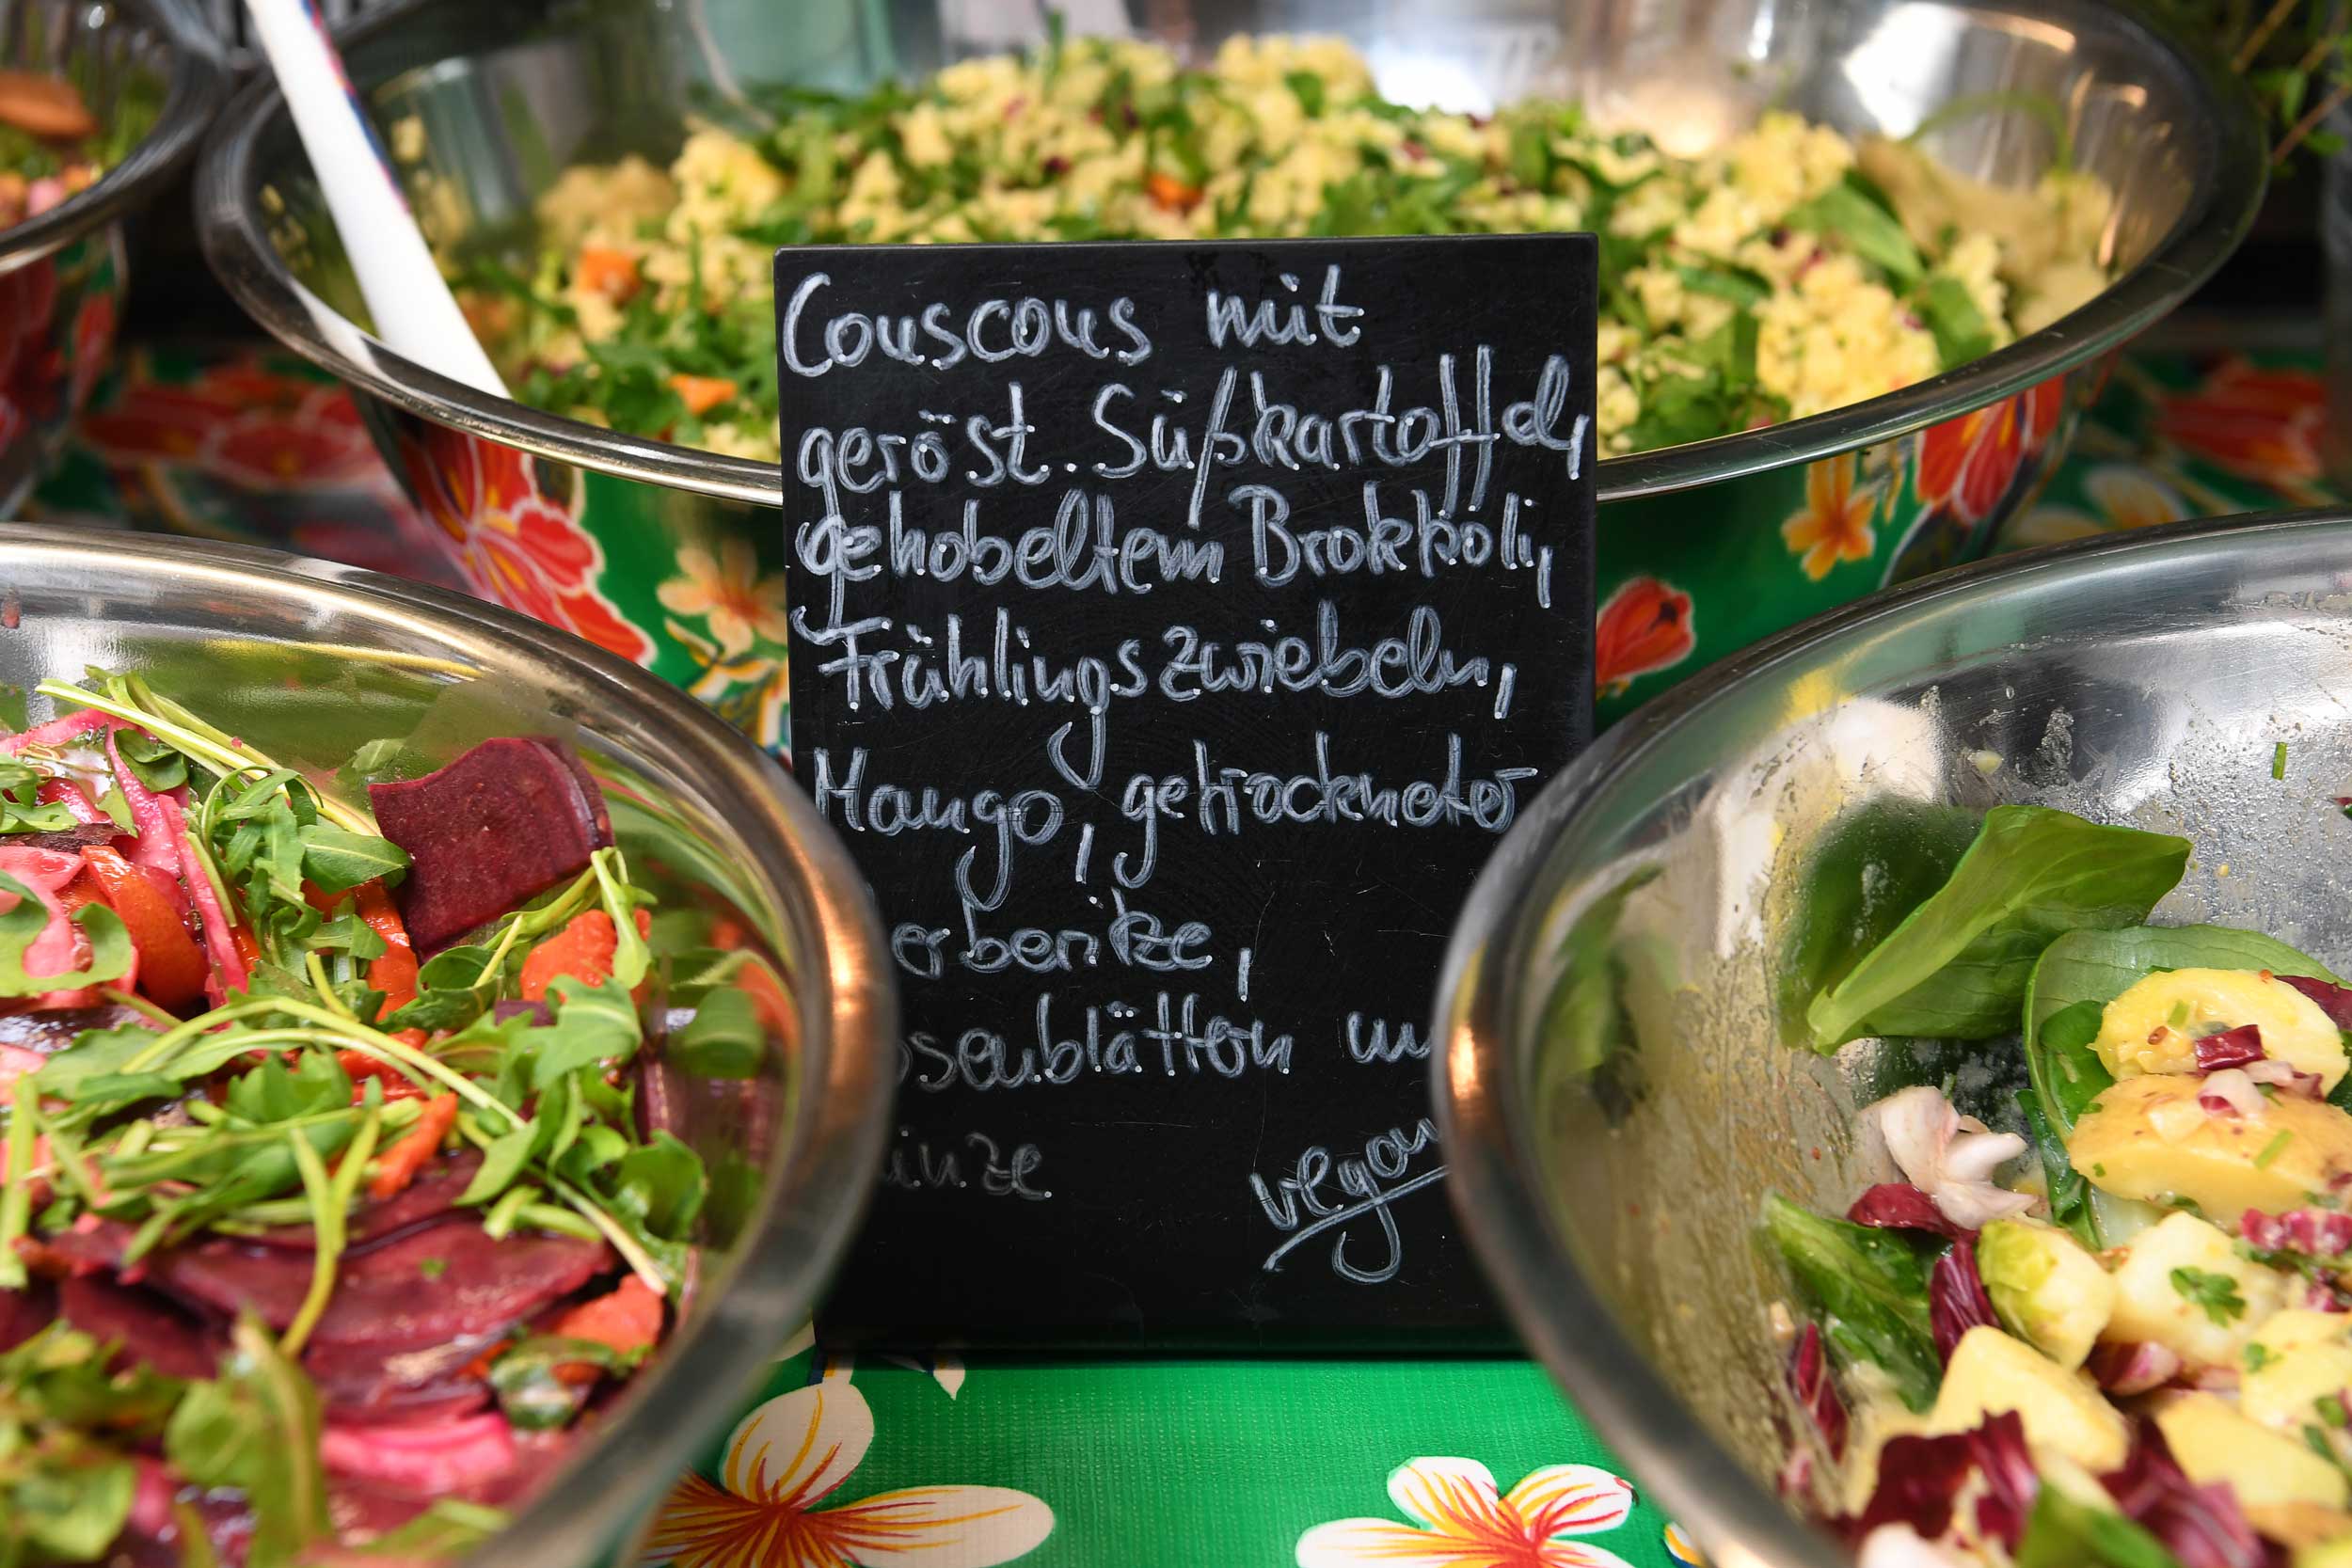 Couscous mit
geröst. Süßkartoffeln,
gehobeltem Brokkoli,
Frühlingszwiebeln,
Mango, getrockneter
erberitze,
osenblätten un
inze
vegan